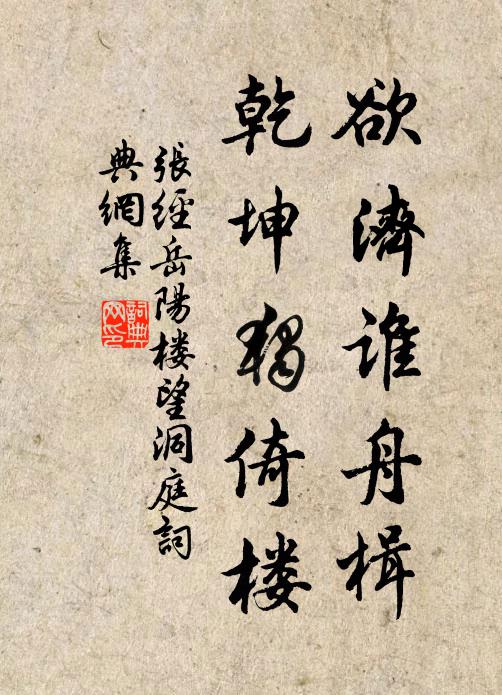 欲濟誰舟楫
乾坤獨倚楼
張經岳陽楼望洞庭詞
典網集
詞典
网印